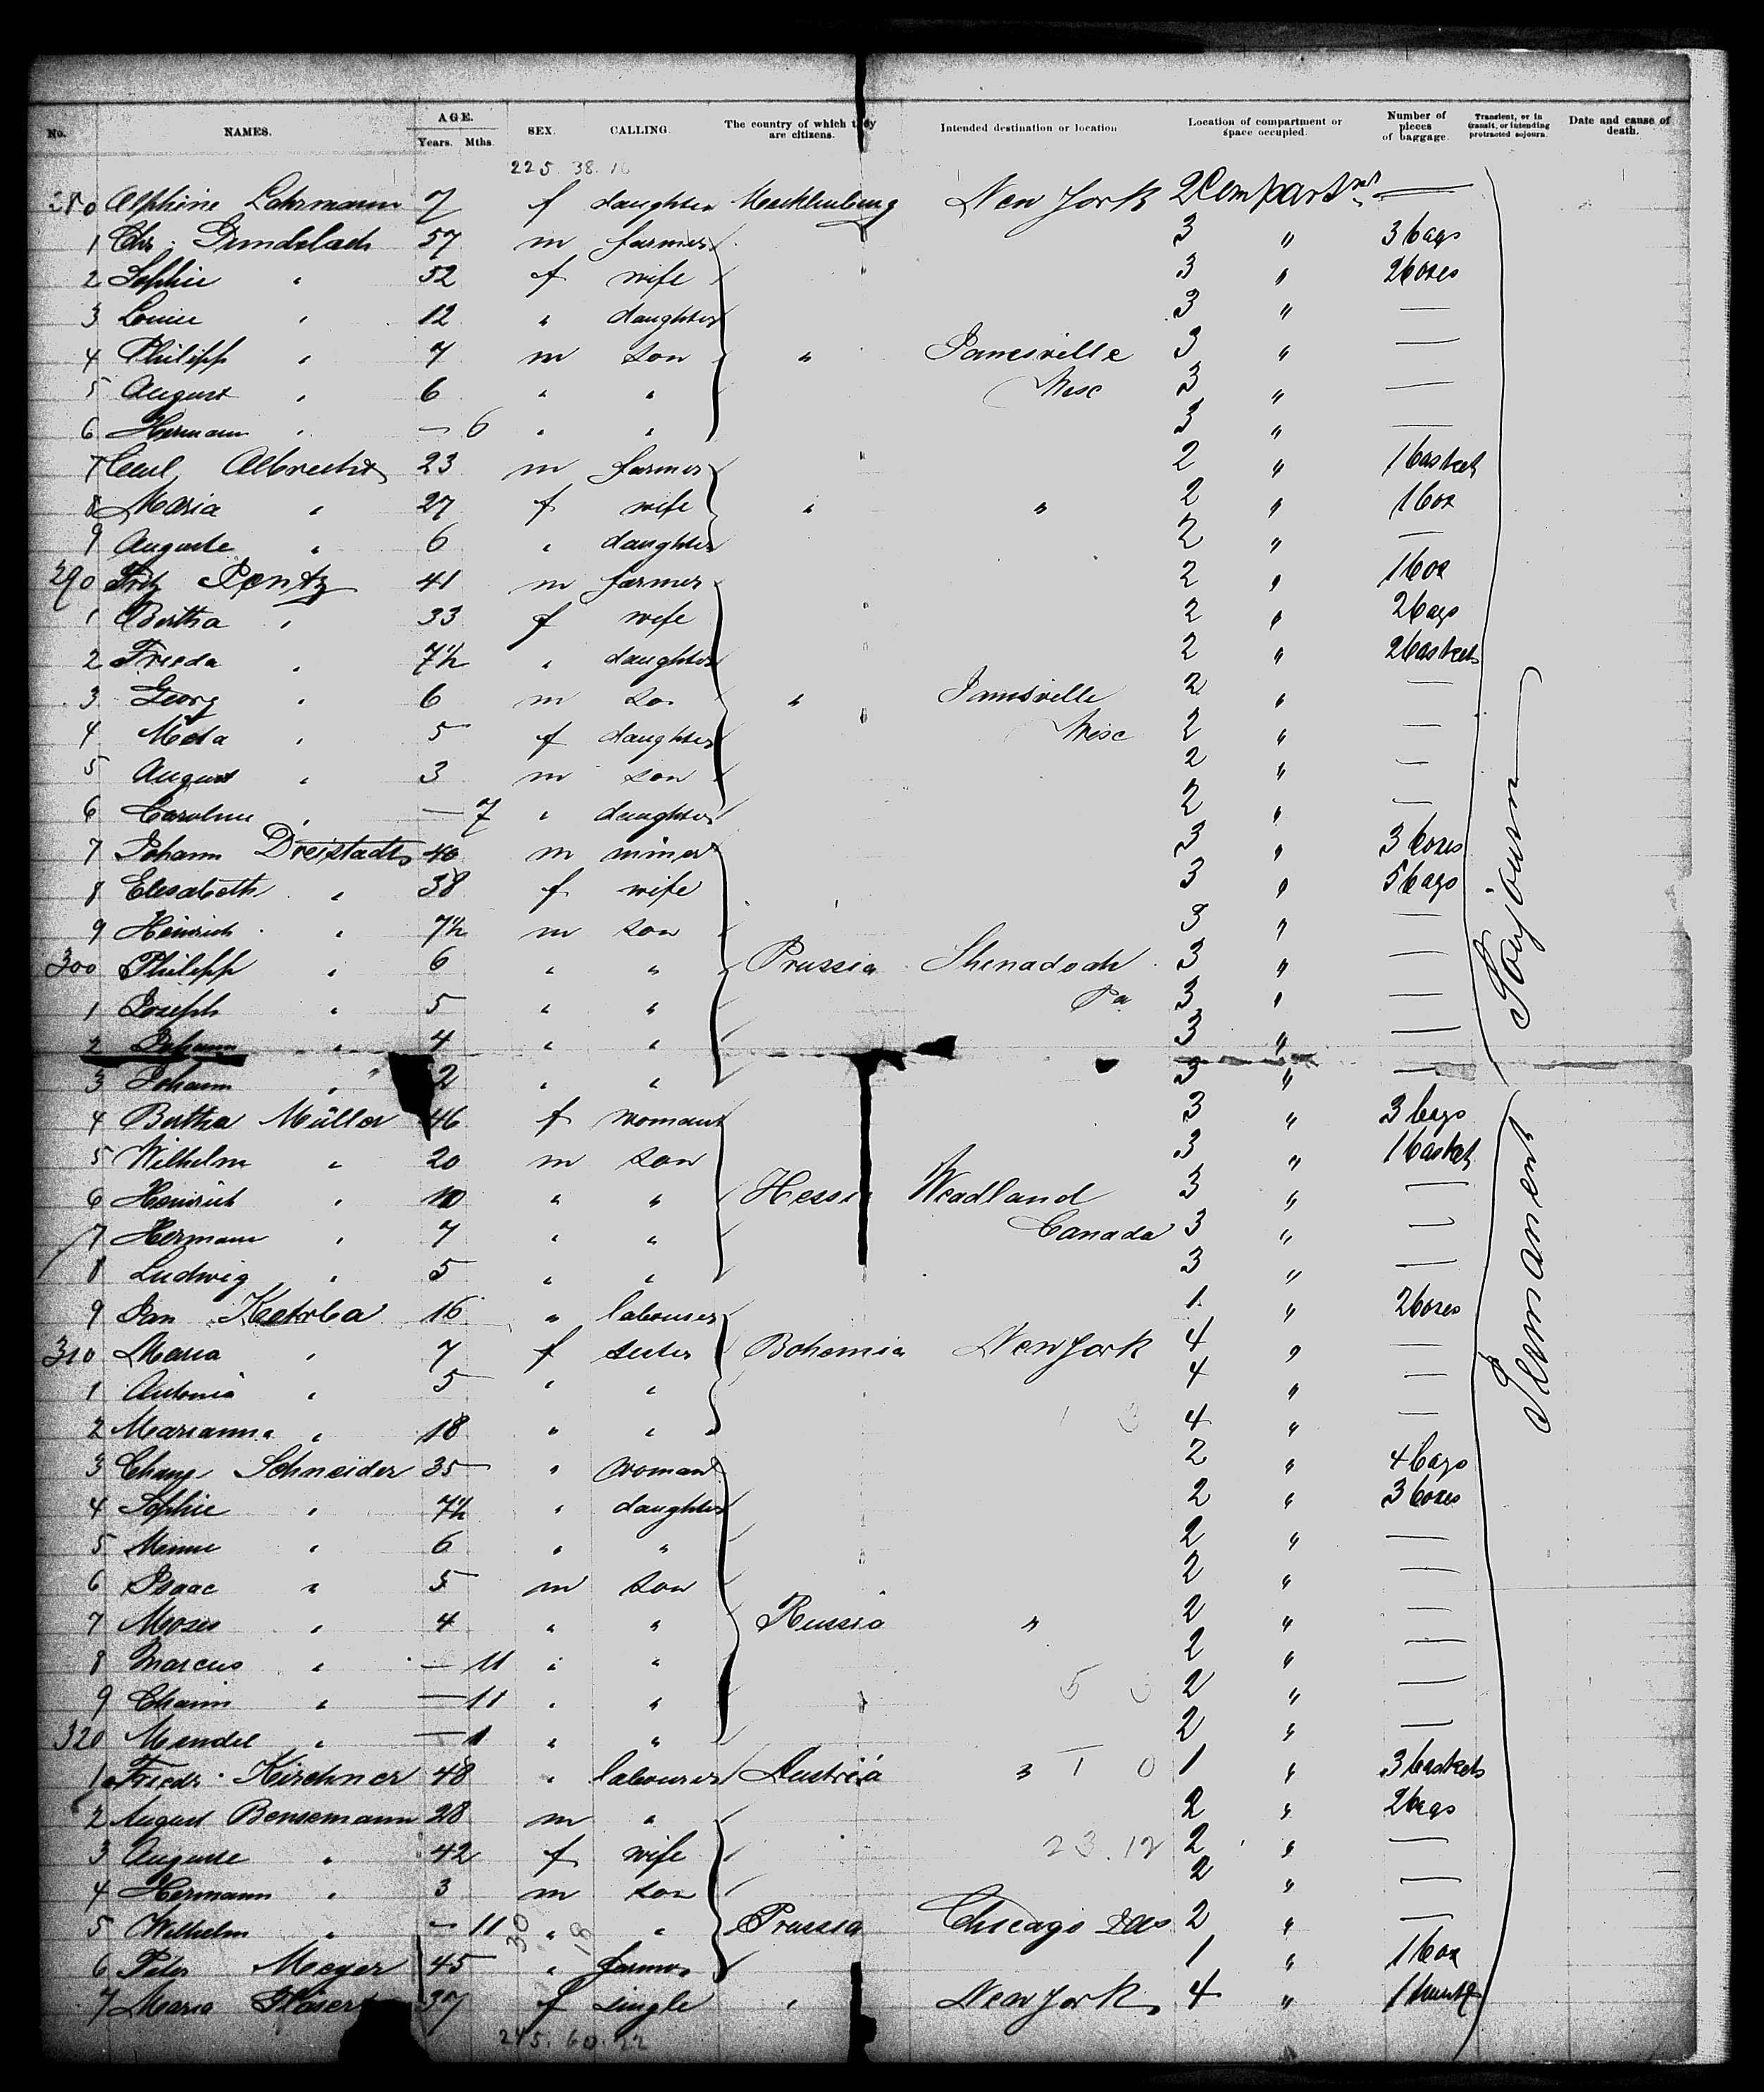 No. NAMES. AGE. Years. Mths. SEX. CALLING. The country of which they are citizens. Intended destination or location Location of compartment or space occupied. Number of pieces of baggage. Transient, or in transit, or intending protracted sojourn. Date and cause of death.
225. 38. 16
280 Alphine Lahrmann 7 f daughter Mecklenburg New York 2 Compartmt —
1 Chr. Grundelach 57 m farmer 3 " 3 bags
2 Sophie " 52 f wife 3 " 2 boxes
3 Louise " 12 " daughter 3 " —
4 Philipp " 7 m son " Janesville 3 " —
5 August " 6 " " Wisc 3 " —
6 Hermann " — 6 " " 3 " —
7 Carl Albrecht 23 m farmer 2 " 1 basket
8 Maria " 27 f wife " " 2 " 1 box
9 Auguste " 6 " daughter 2 " —
290 Fritz Pentz 41 m farmer 2 " 1 box
1 Bertha " 33 f wife 2 " 2 bags
2 Frieda " 7½ " daughter 2 " 2 baskets
3 Georg " 6 m so. " Janisville 2 " —
4 Meta " 5 f daughter Wisc 2 " —
5 August " 3 m son 2 " —
6 Caroline " — 7 " daughter 2 " —
7 Johann Dreistadt 40 m miner 3 " 3 boxes
8 Elisabeth " 38 f wife 3 " 5 bags
9 Heinrich " 7½ m son 3 " —
300 Philipp " 6 " " Prussia Shenadoah 3 " —
1 Joseph " 5 " " Pa 3 " —
2 Johann " 4 " " 3 " —
3 Johann " 2 " " 3 " —
4 Bertha Müller 46 f woman 3 " 3 bags
5 Wilhelm " 20 m son 3 " 1 basket
6 Heinrich " 10 " " Hessia Weadland 3 " —
7 Hermann " 7 " " Canada 3 " —
8 Ludwig " 5 " " 3 " —
9 Jan Kotrba 16 " labourer 1 " 2 boxes
310 Maria " 7 f sister Bohemia New York 4 " —
1 Antonia " 5 " " 4 " —
2 Marianna " 18 " " 4 " —
3 Schneider 35 " woman 2 " 4 bags
4 Sophie " 7½ " daughter 2 " 3 boxes
5 Minne " 6 " " 2 " —
6 Isaac " 5 m son 2 " —
7 Moses " 4 " " Russia " 2 " —
8 Marcus " — 11 " " 2 " —
9 Chaim " — 11 " " 2 " —
320 Mendel " — 1 " " 2 " —
1 Friedr. Kirchner 48 " labourer Austria " 1 " 3 baskets
2 August Bensemann 28 m " 2 " 2 bags
3 Auguste " 42 f wife 23.12 2 " —
4 Hermann " 3 m son 2 " —
5 Wilhelm " — 11 " " Prussia Chicago Ills 2 " —
6 Peter Meyer 45 " farmer 1 " 1 box
7 Maria Glaser 37 f single " New York 4 " 1 trunk
245. 60. 22
Sojourn
Permanent